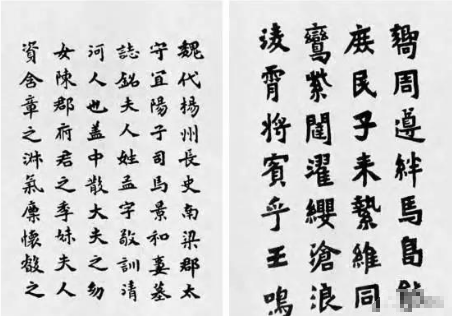 魏代揚州長史南梁郡太
守宜陽子司馬景和妻墓
誌銘夫人姓孟字敬訓清
河人也盖中散大夫之幼
女陳郡府君之季妹夫人
資含章之淋氣禀懷叡之
周遵絆馬島
庶民子来縶維同
鸞紫閨濯纓滄浪
淩霄将賓乎王鳴